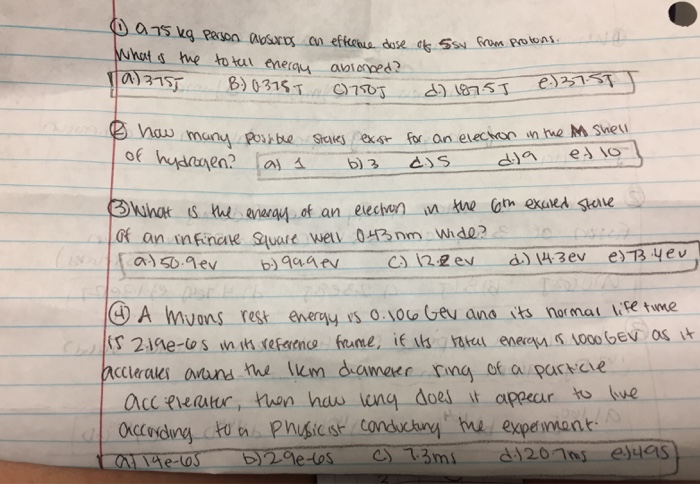 ① a 75 kg person absorbs an effective dose of 5sv from protons.
What is the total energy absorbed?
a) 375J B) 0.375 J c) 750J d) 1875J e.) 37.5J
② how many possible states exist for an electron in the M shell
of hydrogen? a) 1 b) 3 c) 5 d.) 9 e) 10
③ What is the energy of an electron in the 6th excited state
of an infinate square well 0.43nm wide?
a.) 50.9ev b) 99.9ev c.) 12.2ev d.) 14.3ev e) 73.4ev
④ A muons rest energy is 0.106 Gev and its normal life time
is 2.19e-6s in its reference frame, if its total energy is 1000GEV as it
acclerates around the 1km diameter ring of a particle
accelerator, then how long does it appear to live
according to a physicist conducting the experiment.
a) 14e-6s b) 29e-6s c) 7.3ms d.) 20.7ms e) 49s